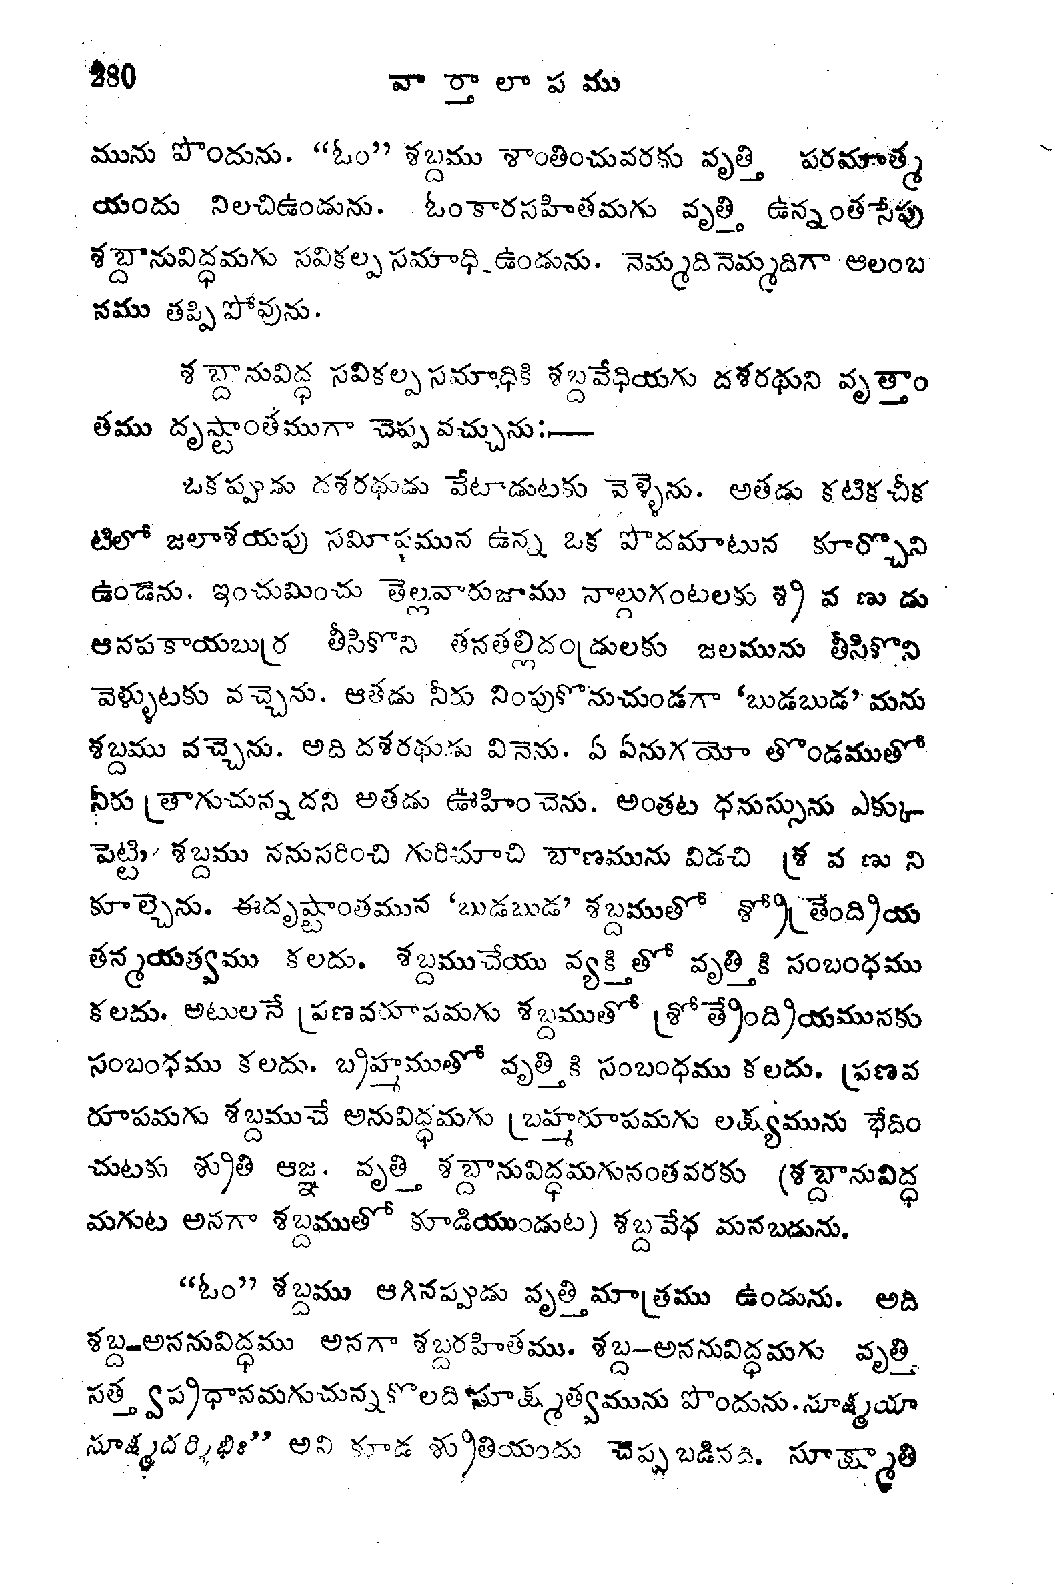 280 వార్తాలాపము
మును పొందును. “ఓం” శబ్దము శాంతించువరకు వృత్తి పరమాత్మ
యందు నిలచిఉండును. ఓంకారసహితమగు వృత్తి ఉన్నంతసేపు
శబ్దానువిద్ధమగు సవికల్ప సమాధి ఉండును. నెమ్మదినెమ్మదిగా ఆలంబ
నము తప్పిపోవును.
శబ్దానువిద్ధ సవికల్ప సమాధికి శబ్దవేధియగు దశరథుని వృత్తాం
తము దృష్టాంతముగా చెప్పవచ్చును:—
ఒకప్పుడు దశరథుడు వేటాడుటకు వెళ్ళెను. అతడు కటికచీక
టిలో జలాశయపు సమీపమున ఉన్న ఒక పొదమాటున కూర్చొని
ఉండెను. ఇంచుమించు తెల్లవారుజాము నాల్గుగంటలకు శ్రవణుడు
ఆనపకాయబుర్ర తీసికొని తనతల్లిదండ్రులకు జలమును తీసికొని
వెళ్ళుటకు వచ్చెను. ఆతడు నీరు నింపుకొనుచుండగా ‘బుడబుడ’ మను
శబ్దము వచ్చెను. అది దశరథుడు వినెను. ఏ ఏనుగయో తొండముతో
నీరు త్రాగుచున్నదని అతడు ఊహించెను. అంతట ధనుస్సును ఎక్కు
పెట్టి శబ్దము ననుసరించి గురిచూచి బాణమును విడచి శ్రవణుని
కూల్చెను. ఈదృష్టాంతమున ‘బుడబుడ’ శబ్దముతో శ్రోత్రేంద్రియ
తన్మయత్వము కలదు. శబ్దముచేయు వ్యక్తితో వృత్తికి సంబంధము
కలదు. అటులనే ప్రణవరూపమగు శబ్దముతో శ్రోత్రేంద్రియమునకు
సంబంధము కలదు. బ్రహ్మముతో వృత్తికి సంబంధము కలదు. ప్రణవ
రూపమగు శబ్దముచే అనువిద్ధమగు బ్రహ్మరూపమగు లక్ష్యమును భేదిం
చుటకు శ్రుతి ఆజ్ఞ. వృత్తి శబ్దానువిద్ధమగునంతవరకు (శబ్దానువిద్ధ
మగుట అనగా శబ్దముతో కూడియుండుట) శబ్దవేధ మనబడును.
“ఓం” శబ్దము ఆగినప్పుడు వృత్తిమాత్రము ఉండును. అది
శబ్ద-అననువిద్ధము అనగా శబ్దరహితము. శబ్ద–అననువిద్ధమగు వృత్తి
సత్త్వప్రధానమగుచున్నకొలది సూక్ష్మత్వమును పొందును. సూక్ష్మయా
సూక్ష్మదర్శిభిః” అని కూడ శ్రుతియందు చెప్పబడినది. సూక్ష్మాతి